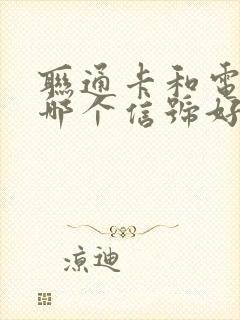 聯通卡和電
哪个信號好
凉迪